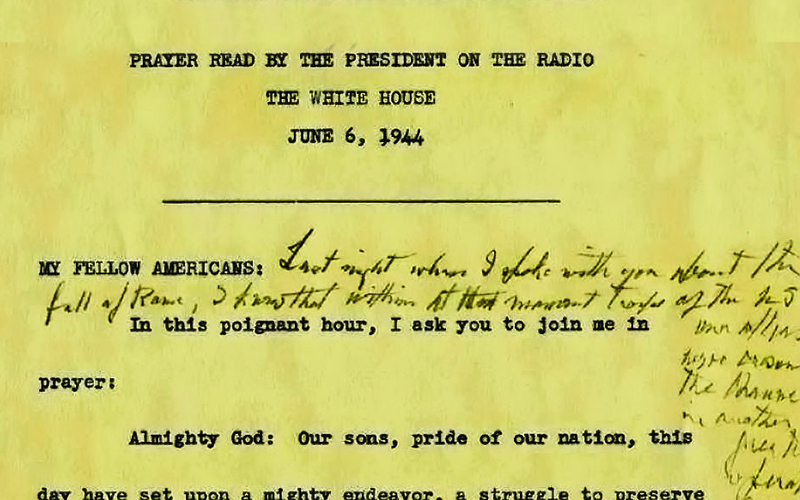 PRAYER READ BY THE PRESIDENT ON THE RADIO
THE WHITE HOUSE
JUNE 6, 1944
MY FELLOW AMERICANS: Last night when I spoke with you about the
fall of Rome, I knew that at that moment troops of the US
In this poignant hour, I ask you to join me in
our allies
were
prayer:
the Channel
in another
Almighty God: Our sons, pride of our nation, this
day have set upon a mighty endeavor, a struggle to preserve